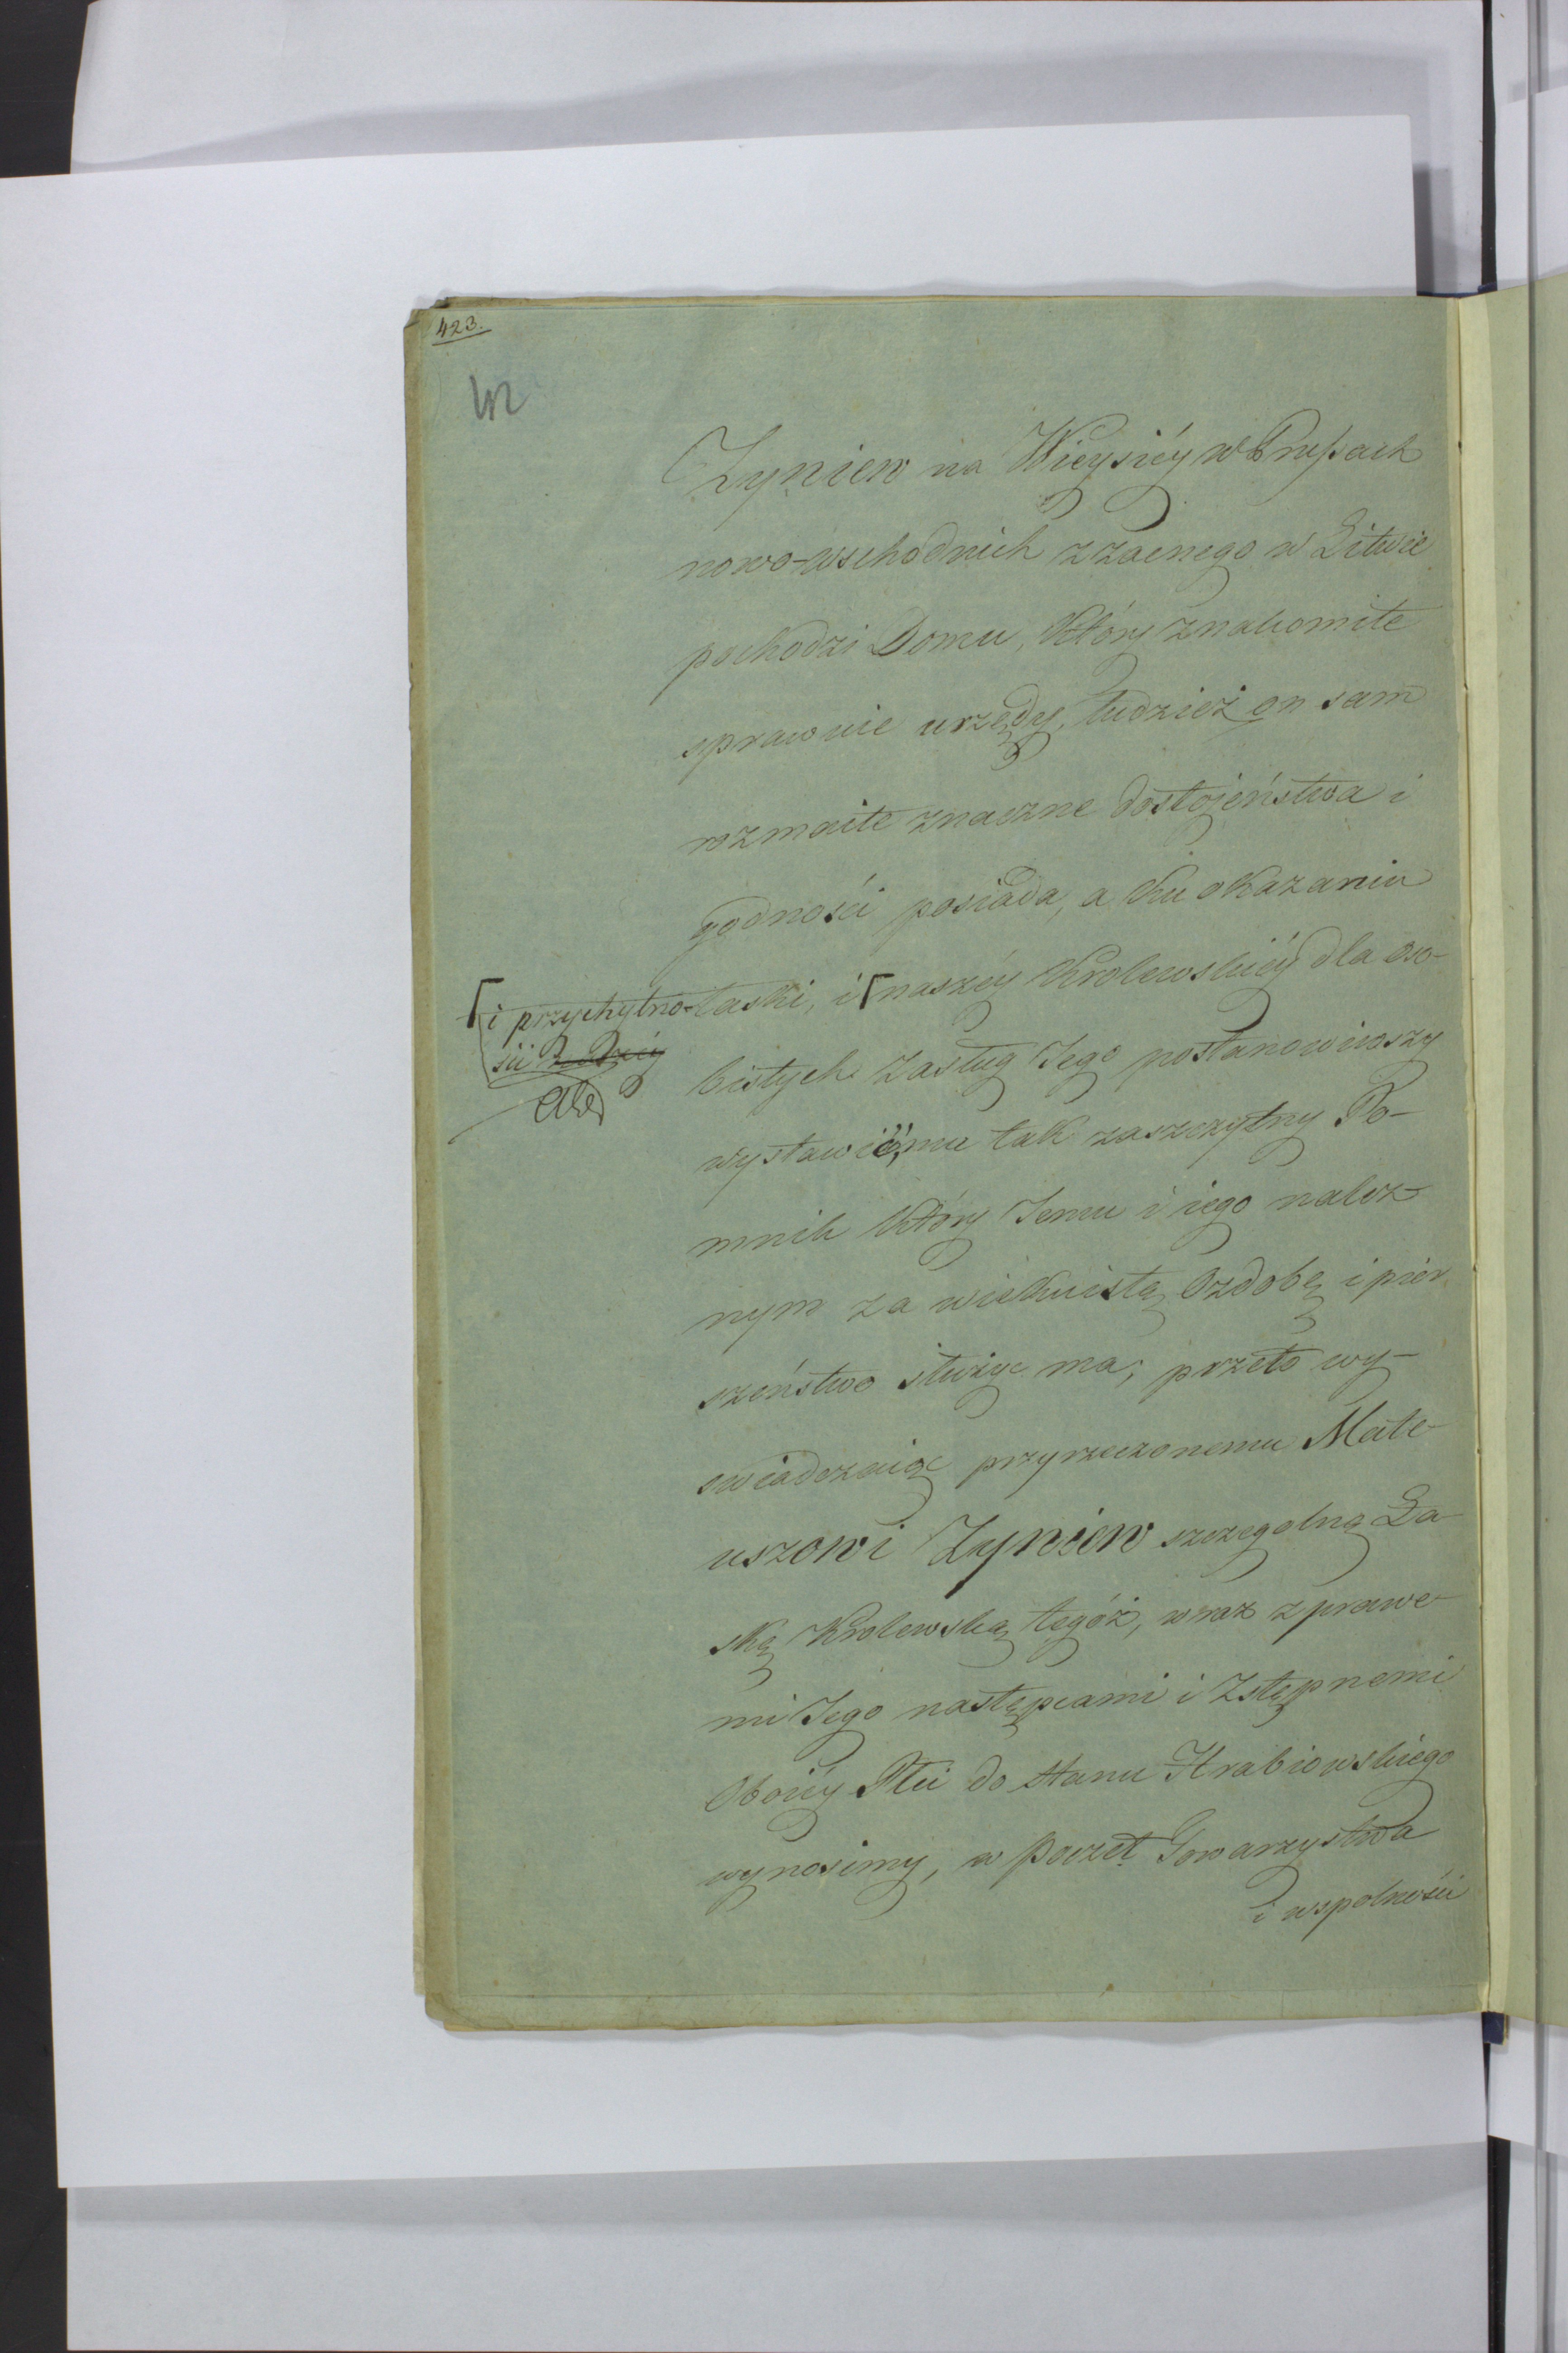 423.
42
Zyniew na Wieysiéy w Prusſach
nowo-wschodnich z zacnego w Litwie
pochodzi Domu, który znakomite
sprawuie urzędy, tudzież on sam
rozmaite znaczne dostojeństwa i
godności posiada, a ku okazaniu
łaski, i ⌈naszéy Krolewskiéy dla oso-
⌈i przychylno-
ści
bistych zasług Jego postanowiwszy
wystawić, mu tak zaszczytny Po-
mnik który Jemu i iego należ-
nym za wiekuistą Ozdobę i pier
szeństwo służyc ma; przeto wy-
swiadczaiąc przyrzeczonemu Mate-
uszowi Zyniew szczegolną Ła-
skę Krolewską tegóż, wraz z prawe-
mi Jego następcami i Zstępnemi
Oboiéy Płci do stanu Hrabiowskiego
wynosimy, w Poczet Towarzystwa
i wspolności